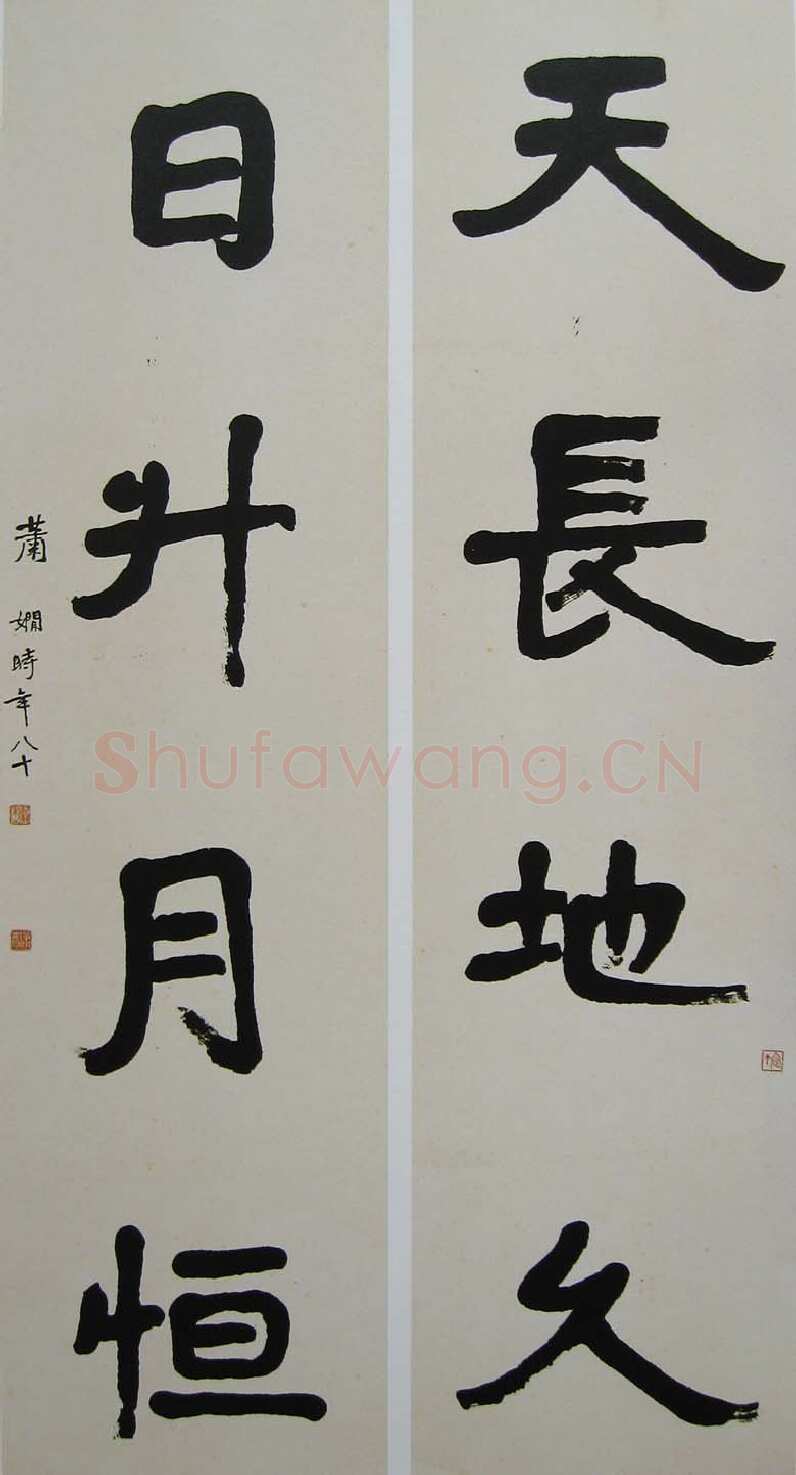 天長地久
日升月恒
蕭嫺時年八十
Shufawang.CN